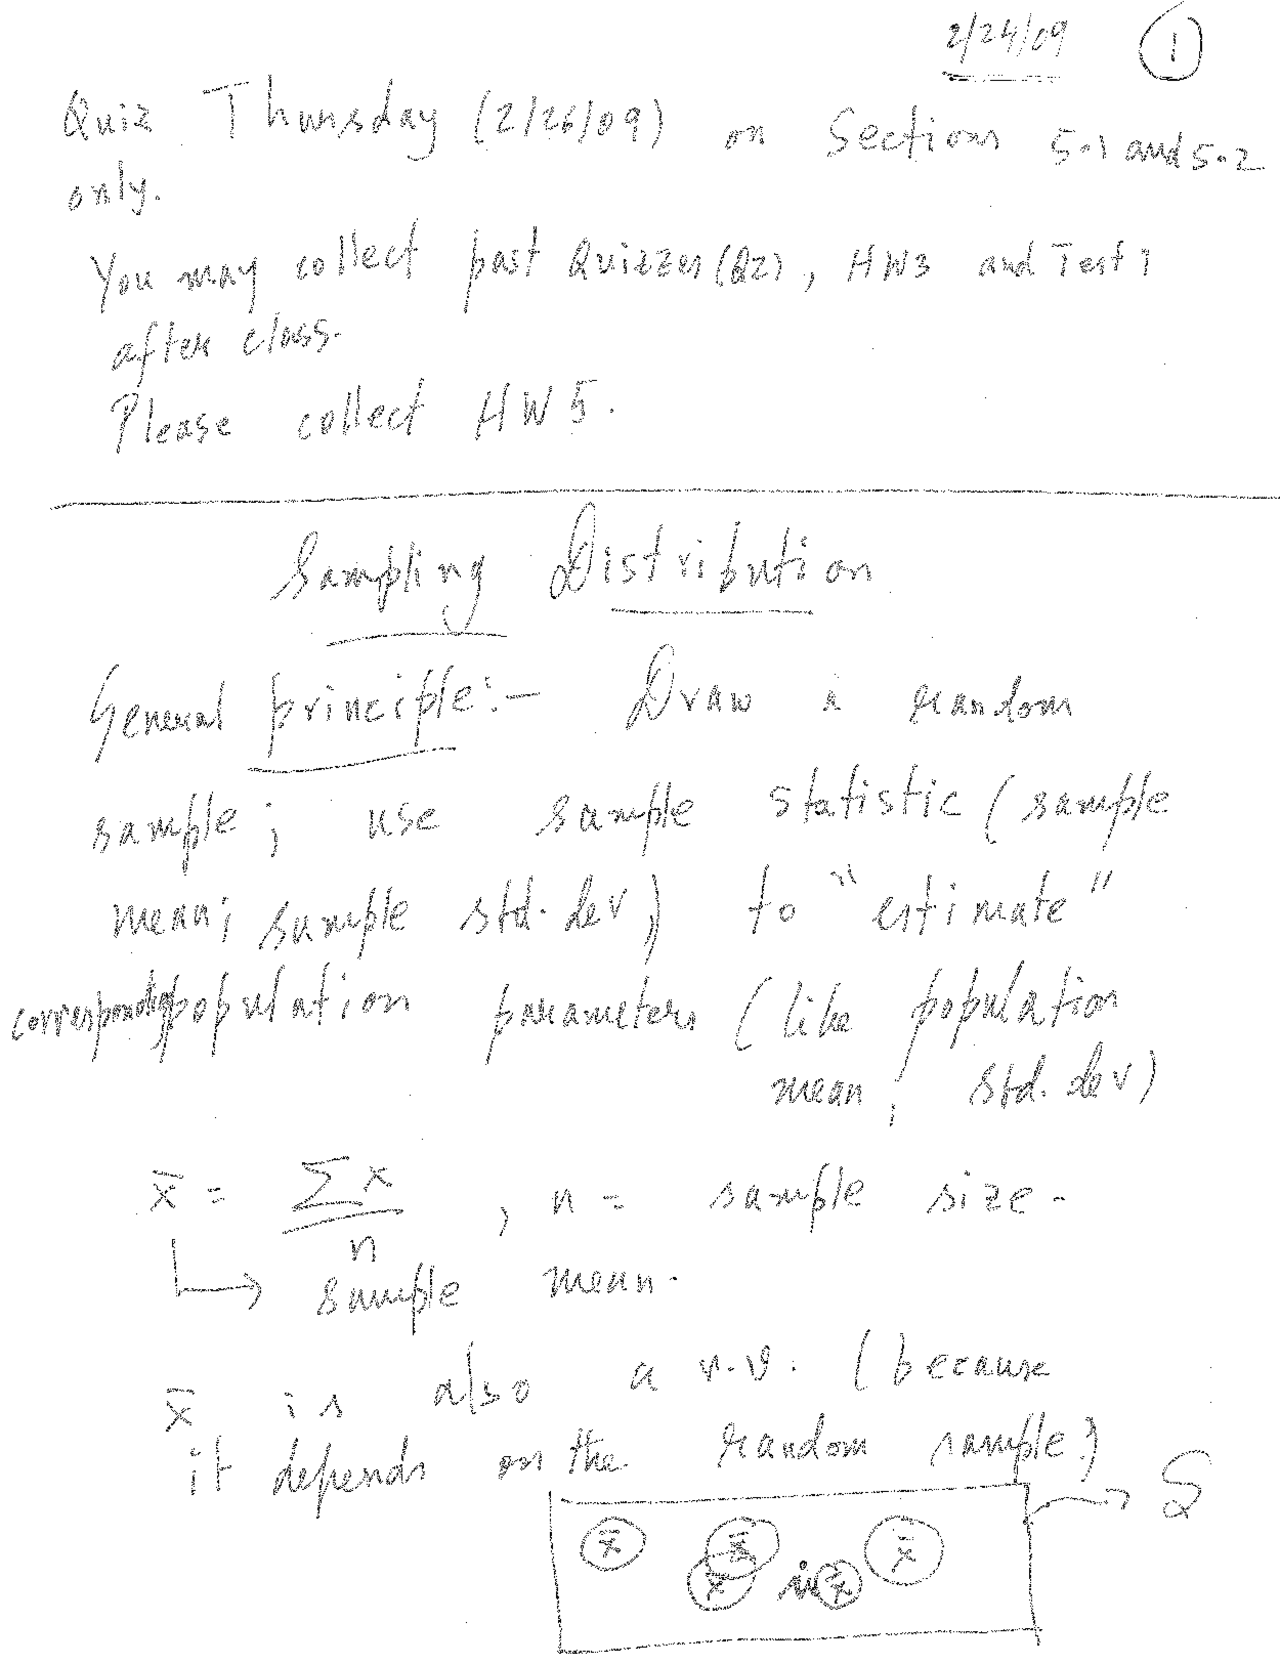 2/24/09 1
Quiz Thursday (2/26/09) on Sections 5.1 and 5.2
only.
You may collect past Quizzes (Q2), HW3 and Test 1
after class.
Please collect HW 5.
Sampling Distribution
General principle:- Draw a random
sample; use sample statistic (sample
mean; sample std. dev) to "estimate"
corresponding population parameters (like population
mean, std. dev)
x̄ = Σx / n , n = sample size.
↳ sample mean.
x̄ is also a r.v. (because
it depends on the random sample.)
→ S
x̄ x̄ x̄
x̄ x̄